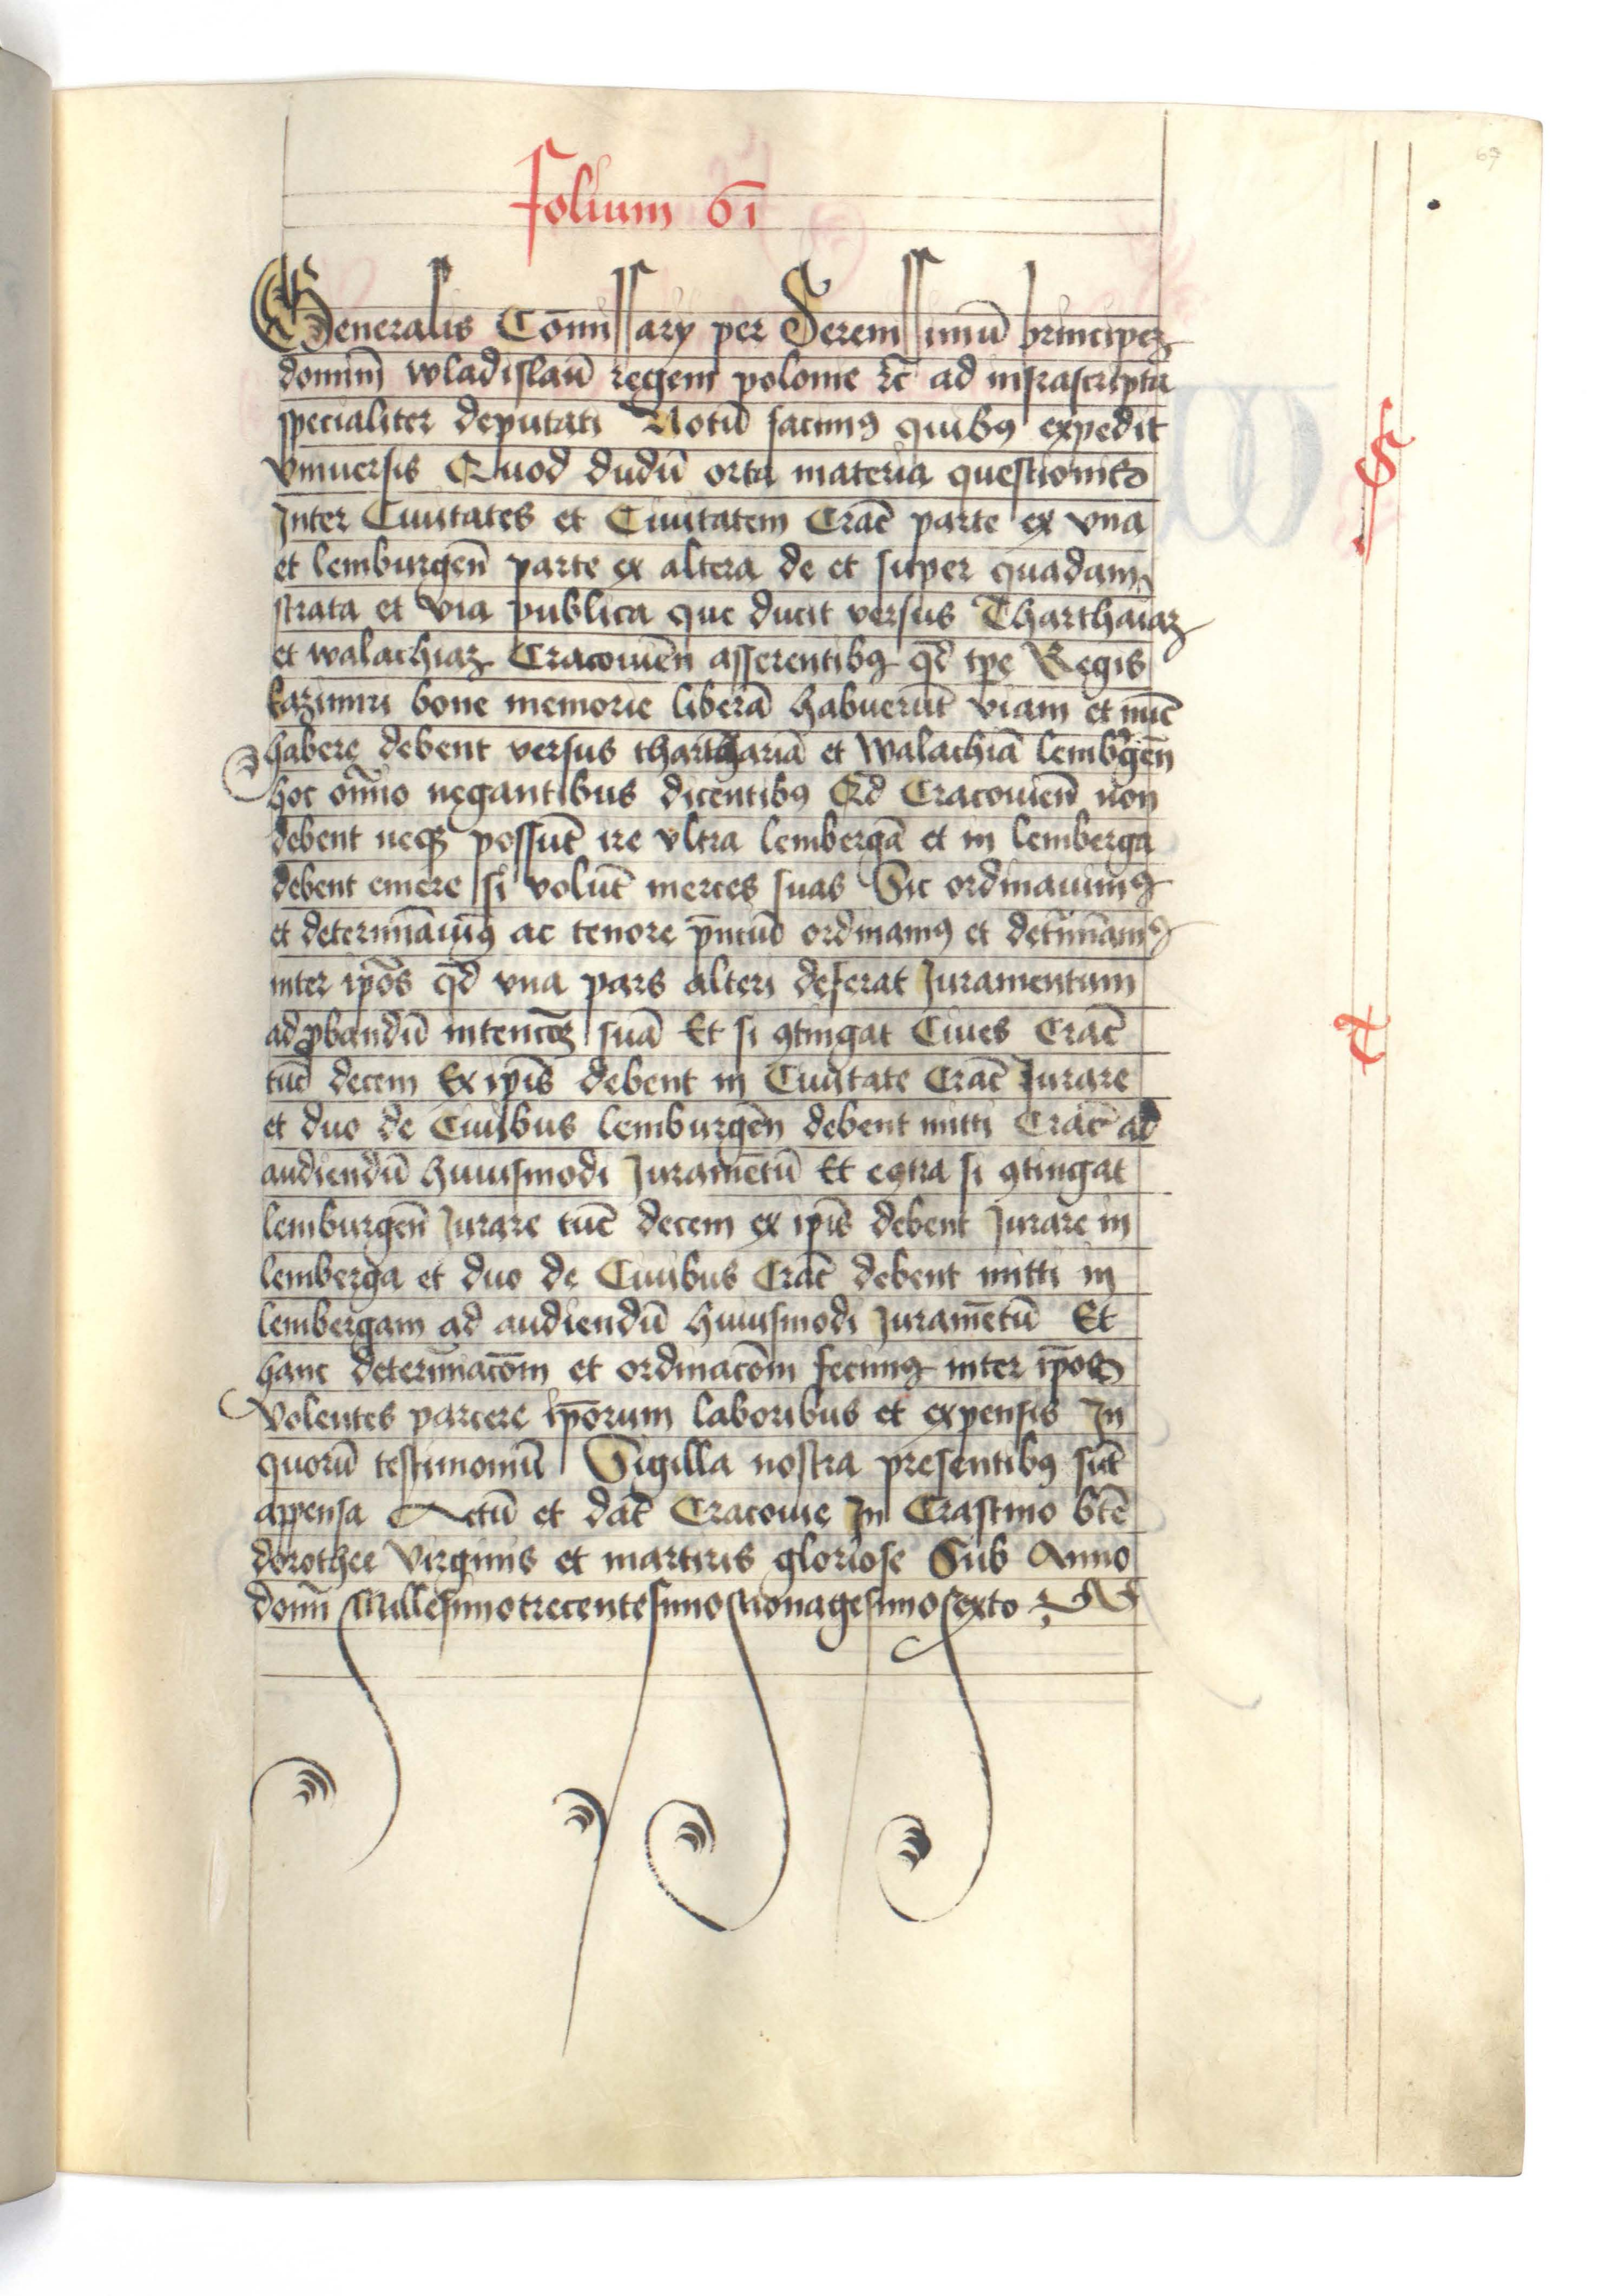 folium 61
69
Generalis Cōmissarÿ per Serenissimū principeꝫ
dominū wladislaū regem polonie ꝛc̄ ad infrascripta
specialiter deputati Notū facimꝯ quibꝯ expedit
vniuersis Quod dudū orta materia questionis
Inter Ciuitates et Ciuitatem Crac̄ parte ex vna
et lemburgen̄ parte ex altera de et super quadam
strata et via publica que ducit versus Tharthaiaꝫ
et walachiaꝫ Cracouien̄ asserentibꝯ qd̄ tp̄e Regis
kazimiri bone memorie liberā habuerūt viam et nūc
habere debent versus tharthariā et Walachiā lembꝯgen̄
hoc om̄ino negantibus dicentibꝯ Qd̄ Cracouien̄ non
debent neqꝫ possūt ire vltra lembergā et in lemberga
debent emere si volūt merces suas Sic ordinauimꝯ
et determināuimꝯ ac tenore pn̄tiū ordinamꝯ et det̄minamꝯ
inter ip̄os qd̄ vna pars alteri deferat Juramentum
ad ꝓbandū intenc̄oeꝫ suā Et si ꝯtingat Ciues Crac̄
tūc decem Ex ip̄is debent in Ciuitate Crac̄ Jurare
et duo de Ciuibus lemburgen̄ debent mitti Crac̄ ad
audiendū huiusmodi Juramētū Et eꝯtra si ꝯtingat
lemburgen̄ Jurare tūc decem ex ip̄is debent Jurare in
lemberga et duo de Ciuibus Crac̄ debent mitti in
lembergam ad audiendū huiusmodi Juramētū Et
hanc determinac̄om et ordinac̄om fecimꝯ inter ip̄os
Volentes parcere ip̄orum laboribus et expensis In
quorū testimoniū Sigilla nostra presentibꝯ sūt
appensa Actū et dat̄ Cracouie In Crastino bt̄e
dorothee Virginis et martiris gloriose Sub Anno
domī MillesimotrecentesimoNonagesimosexto
S
T